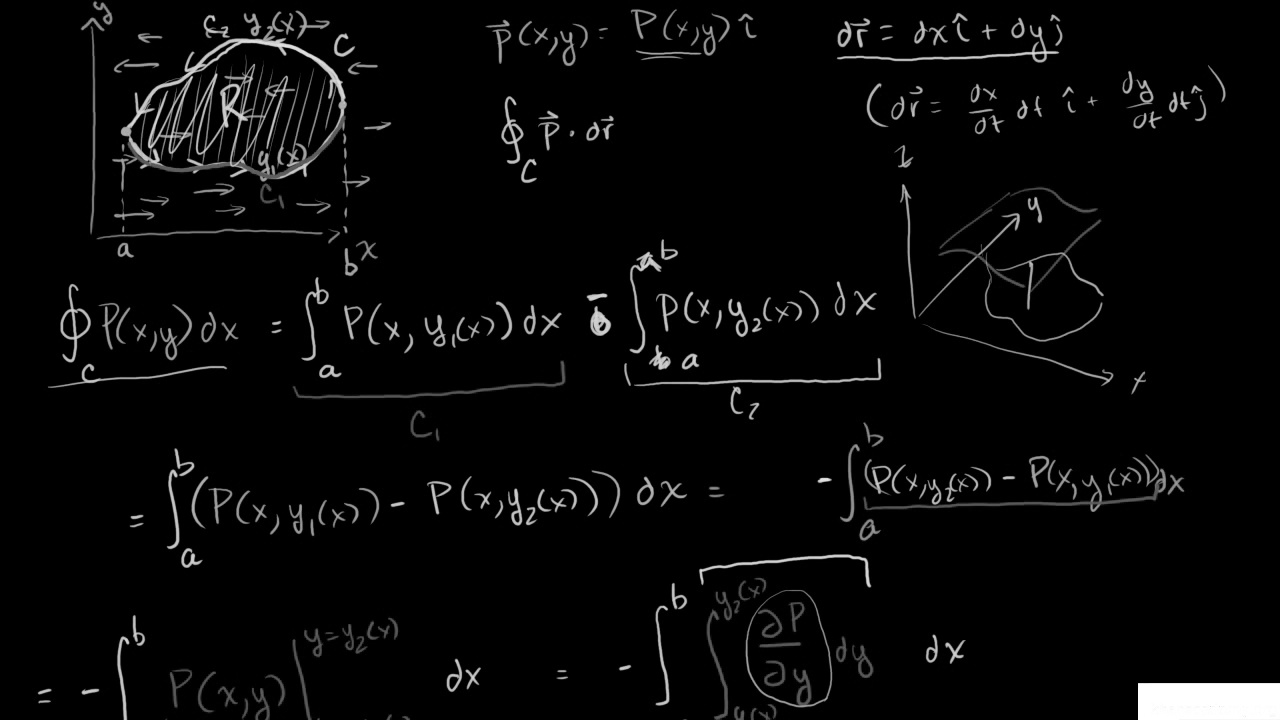 y
C₂ y₂(x)
C
R
y₁(x)
C₁
a b x
P⃗(x,y) = P(x,y) î
∮_C P⃗ · dr⃗
dr⃗ = dx î + dy ĵ
(dr⃗ = dx/dt dt î + dy/dt dt ĵ)
z
y
x
∮_C P(x,y) dx = ∫_a^b P(x, y₁(x)) dx - ∫_a^b P(x, y₂(x)) dx
C₁ C₂
= ∫_a^b (P(x, y₁(x)) - P(x, y₂(x))) dx = - ∫_a^b (P(x, y₂(x)) - P(x, y₁(x))) dx
= - ∫^b P(x,y) |^{y=y₂(x)} dx = - ∫^b ∫_{y₁(x)}^{y₂(x)} ∂P/∂y dy dx